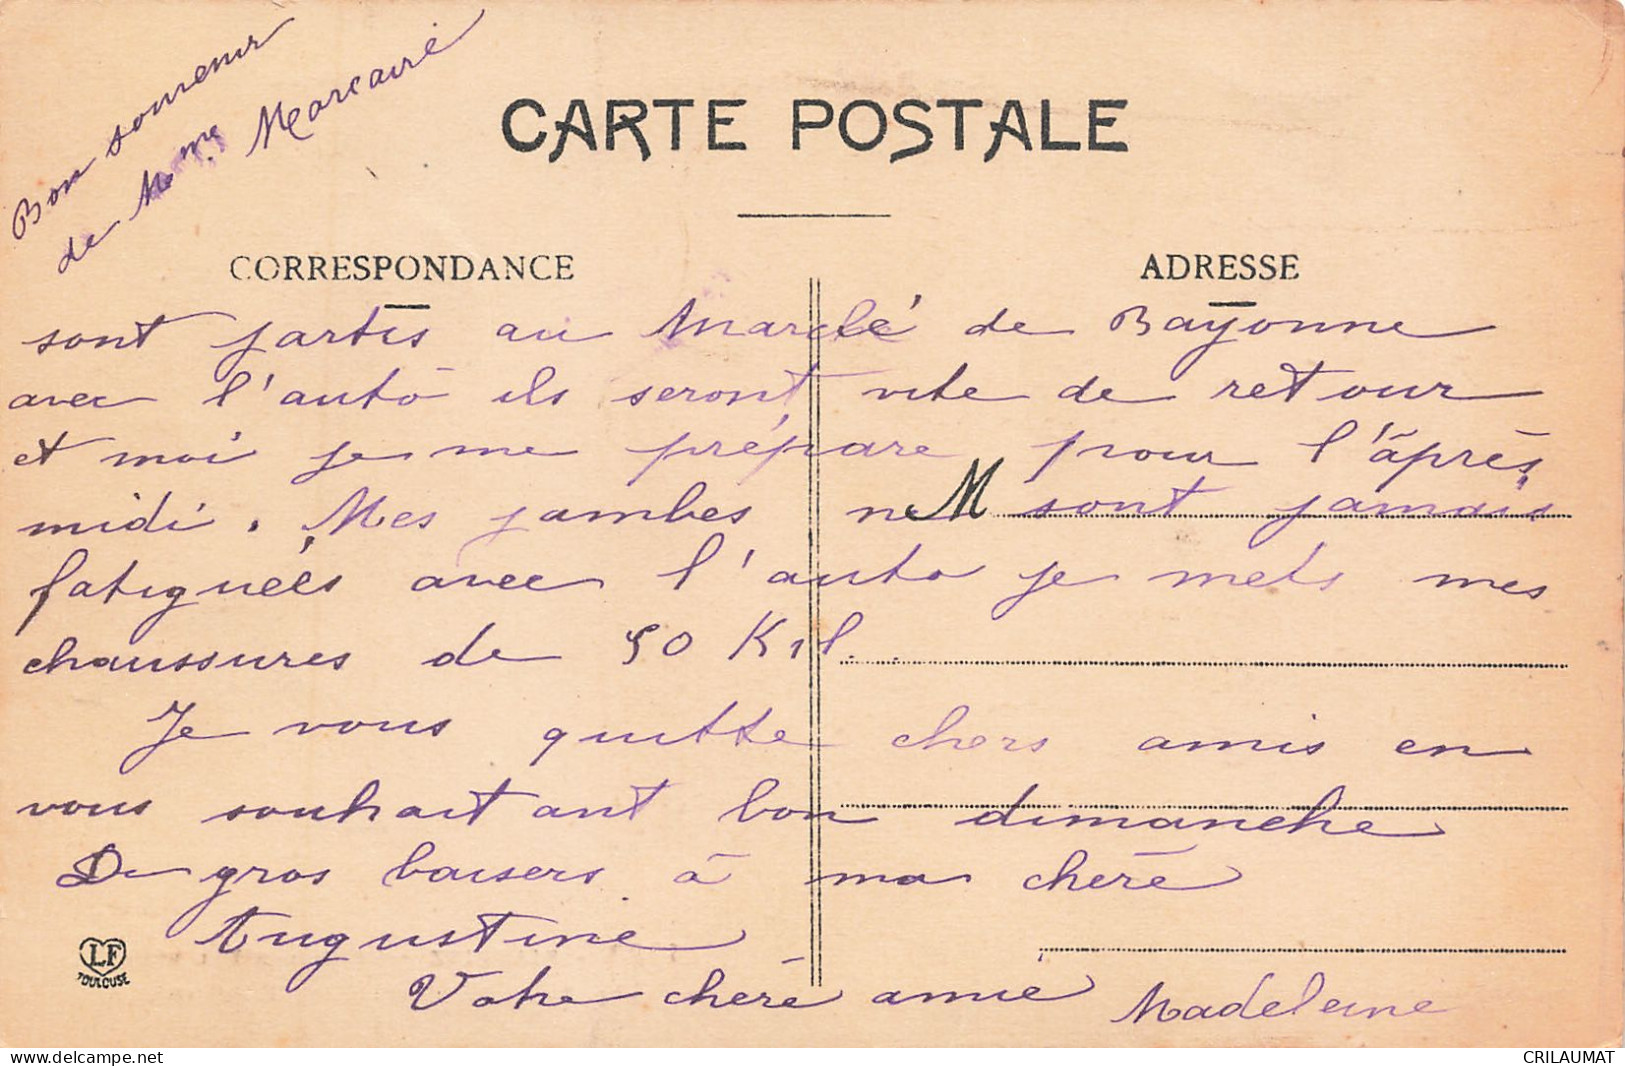 Bon souvenir
de Mme Marcairé
CARTE POSTALE
CORRESPONDANCE
ADRESSE
sont partis au Marché de Bayonne
avec l'auto ils seront vite de retour
et moi je me prépare pour l'après
midi. Mes jambes ne M sont jamais
fatiguées avec l'auto je mets mes
chaussures de 50 Kil.
Je vous quitte chers amis en
vous souhaitant bon dimanche
De gros baisers à ma chère
Augustine
Votre chère amie Madeleine
LF
TOULOUSE
CRILAUMAT